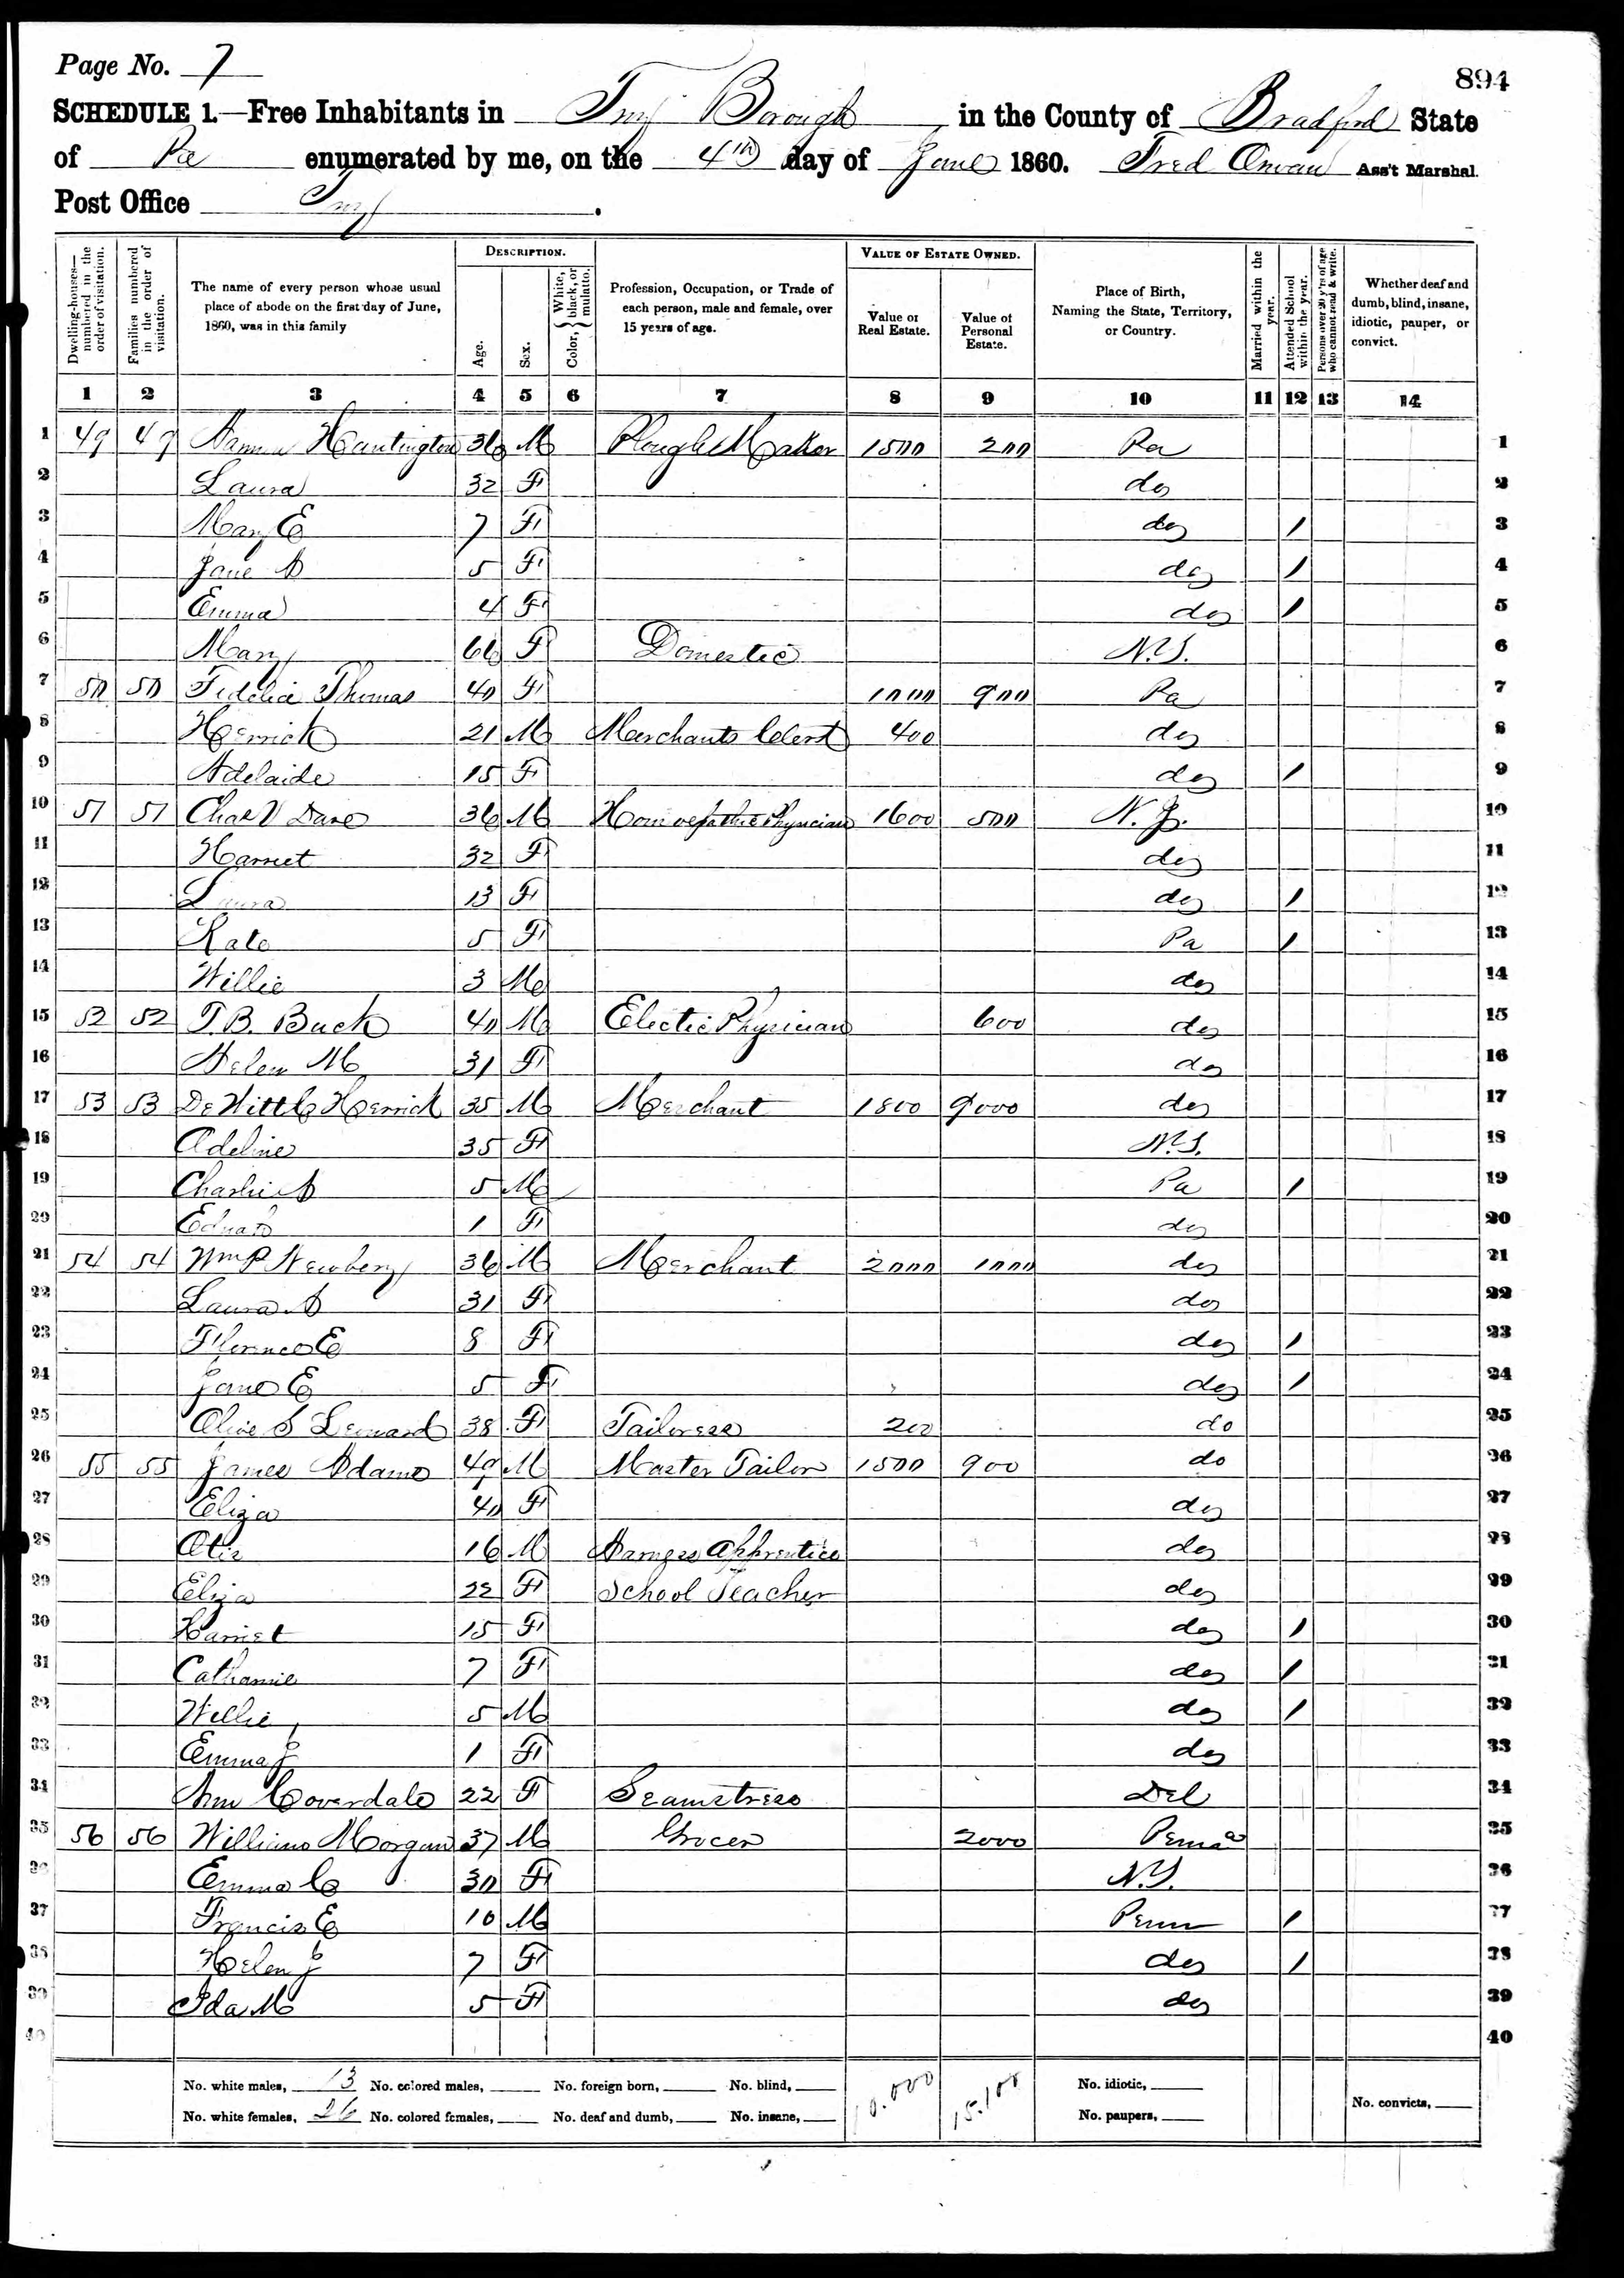 Page No. 7
894
SCHEDULE 1.—Free Inhabitants in Troy Borough in the County of Bradford State
of Pa enumerated by me, on the 4th day of June 1860. Fred Orwan Ass't Marshal.
Post Office Troy.
Dwelling-houses—numbered in the order of visitation.
Families numbered in the order of visitation.
The name of every person whose usual place of abode on the first day of June, 1860, was in this family
DESCRIPTION.
Age.
Sex.
Color, White, black, or mulatto.
Profession, Occupation, or Trade of each person, male and female, over 15 years of age.
VALUE OF ESTATE OWNED.
Value of Real Estate.
Value of Personal Estate.
Place of Birth, Naming the State, Territory, or Country.
Married within the year.
Attended School within the year.
Persons over 20 y'rs of age who cannot read & write.
Whether deaf and dumb, blind, insane, idiotic, pauper, or convict.
1 2 3 4 5 6 7 8 9 10 11 12 13 14
1 49 49 Huntington 36 M Plough Maker 1500 200 Pa 1
2 Laura 32 F do 2
3 Mary E 7 F do / 3
4 Jane A 5 F do / 4
5 Emma 4 F do / 5
6 Mary 66 F Domestic N.Y. 6
7 50 50 Fidelia Thomas 40 F 1000 900 Pa 7
8 Herrick 21 M Merchants Clerk 400 do 8
9 Adelaide 15 F do / 9
10 51 51 Chas V Dare 36 M Homoepathic Physician 1600 500 N.J. 10
11 Harriet 32 F do 11
12 Laura 13 F do / 12
13 Kate 5 F Pa / 13
14 Willie 3 M do 14
15 52 52 T.B. Buck 40 M Electic Physician 600 do 15
16 Helen M 31 F do 16
17 53 53 DeWitt C Herrick 35 M Merchant 1800 9000 do 17
18 Adeline 35 F N.Y. 18
19 Charlie A 5 M Pa / 19
20 1 F do 20
21 54 54 Wm P Newbery 36 M Merchant 2000 1000 do 21
22 Laura A 31 F do 22
23 Florence E 8 F do / 23
24 Jane E 5 F do / 24
25 Olive S Leonard 38 F Tailoress 200 do 25
26 55 55 James Adams 49 M Master Tailor 1500 900 do 26
27 Eliza 40 F do 27
28 Otis 16 M Harness Apprentice do 28
29 Eliza 22 F School Teacher do 29
30 Harriet 15 F do / 30
31 Catharine 7 F do / 31
32 Willie 5 M do / 32
33 Emma J 1 F do 33
34 Ann Coverdale 22 F Seamstress Del 34
35 56 56 William Morgan 37 M Grocer 2000 Penna 35
36 Emma C 30 F N.Y. 36
37 Francis E 10 M Penn / 37
38 Helen J 7 F do / 38
39 Ida M 5 F do 39
40 40
No. white males, 13 No. colored males, No. foreign born, No. blind, 10.000 15.100 No. idiotic,
No. white females, 26 No. colored females, No. deaf and dumb, No. insane, No. paupers, No. convicts,